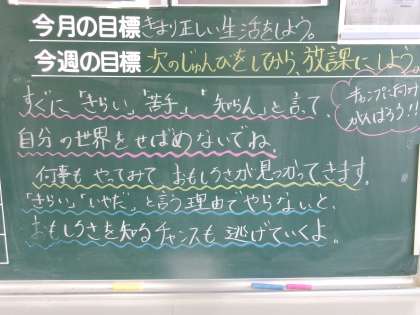 今月の目標 きまり正しい生活をしよう。
今週の目標 次のじゅんびをしてから、放課にしよう。
すぐに「きらい」「苦手」「知らん」と言って、
自分の世界をせばめないでね。
何事もやってみて おもしろさが見つかってきます。
「きらい」「いやだ」と言う理由でやらないと、
おもしろさを知るチャンスも 逃げていくよ。
がんばろう!!